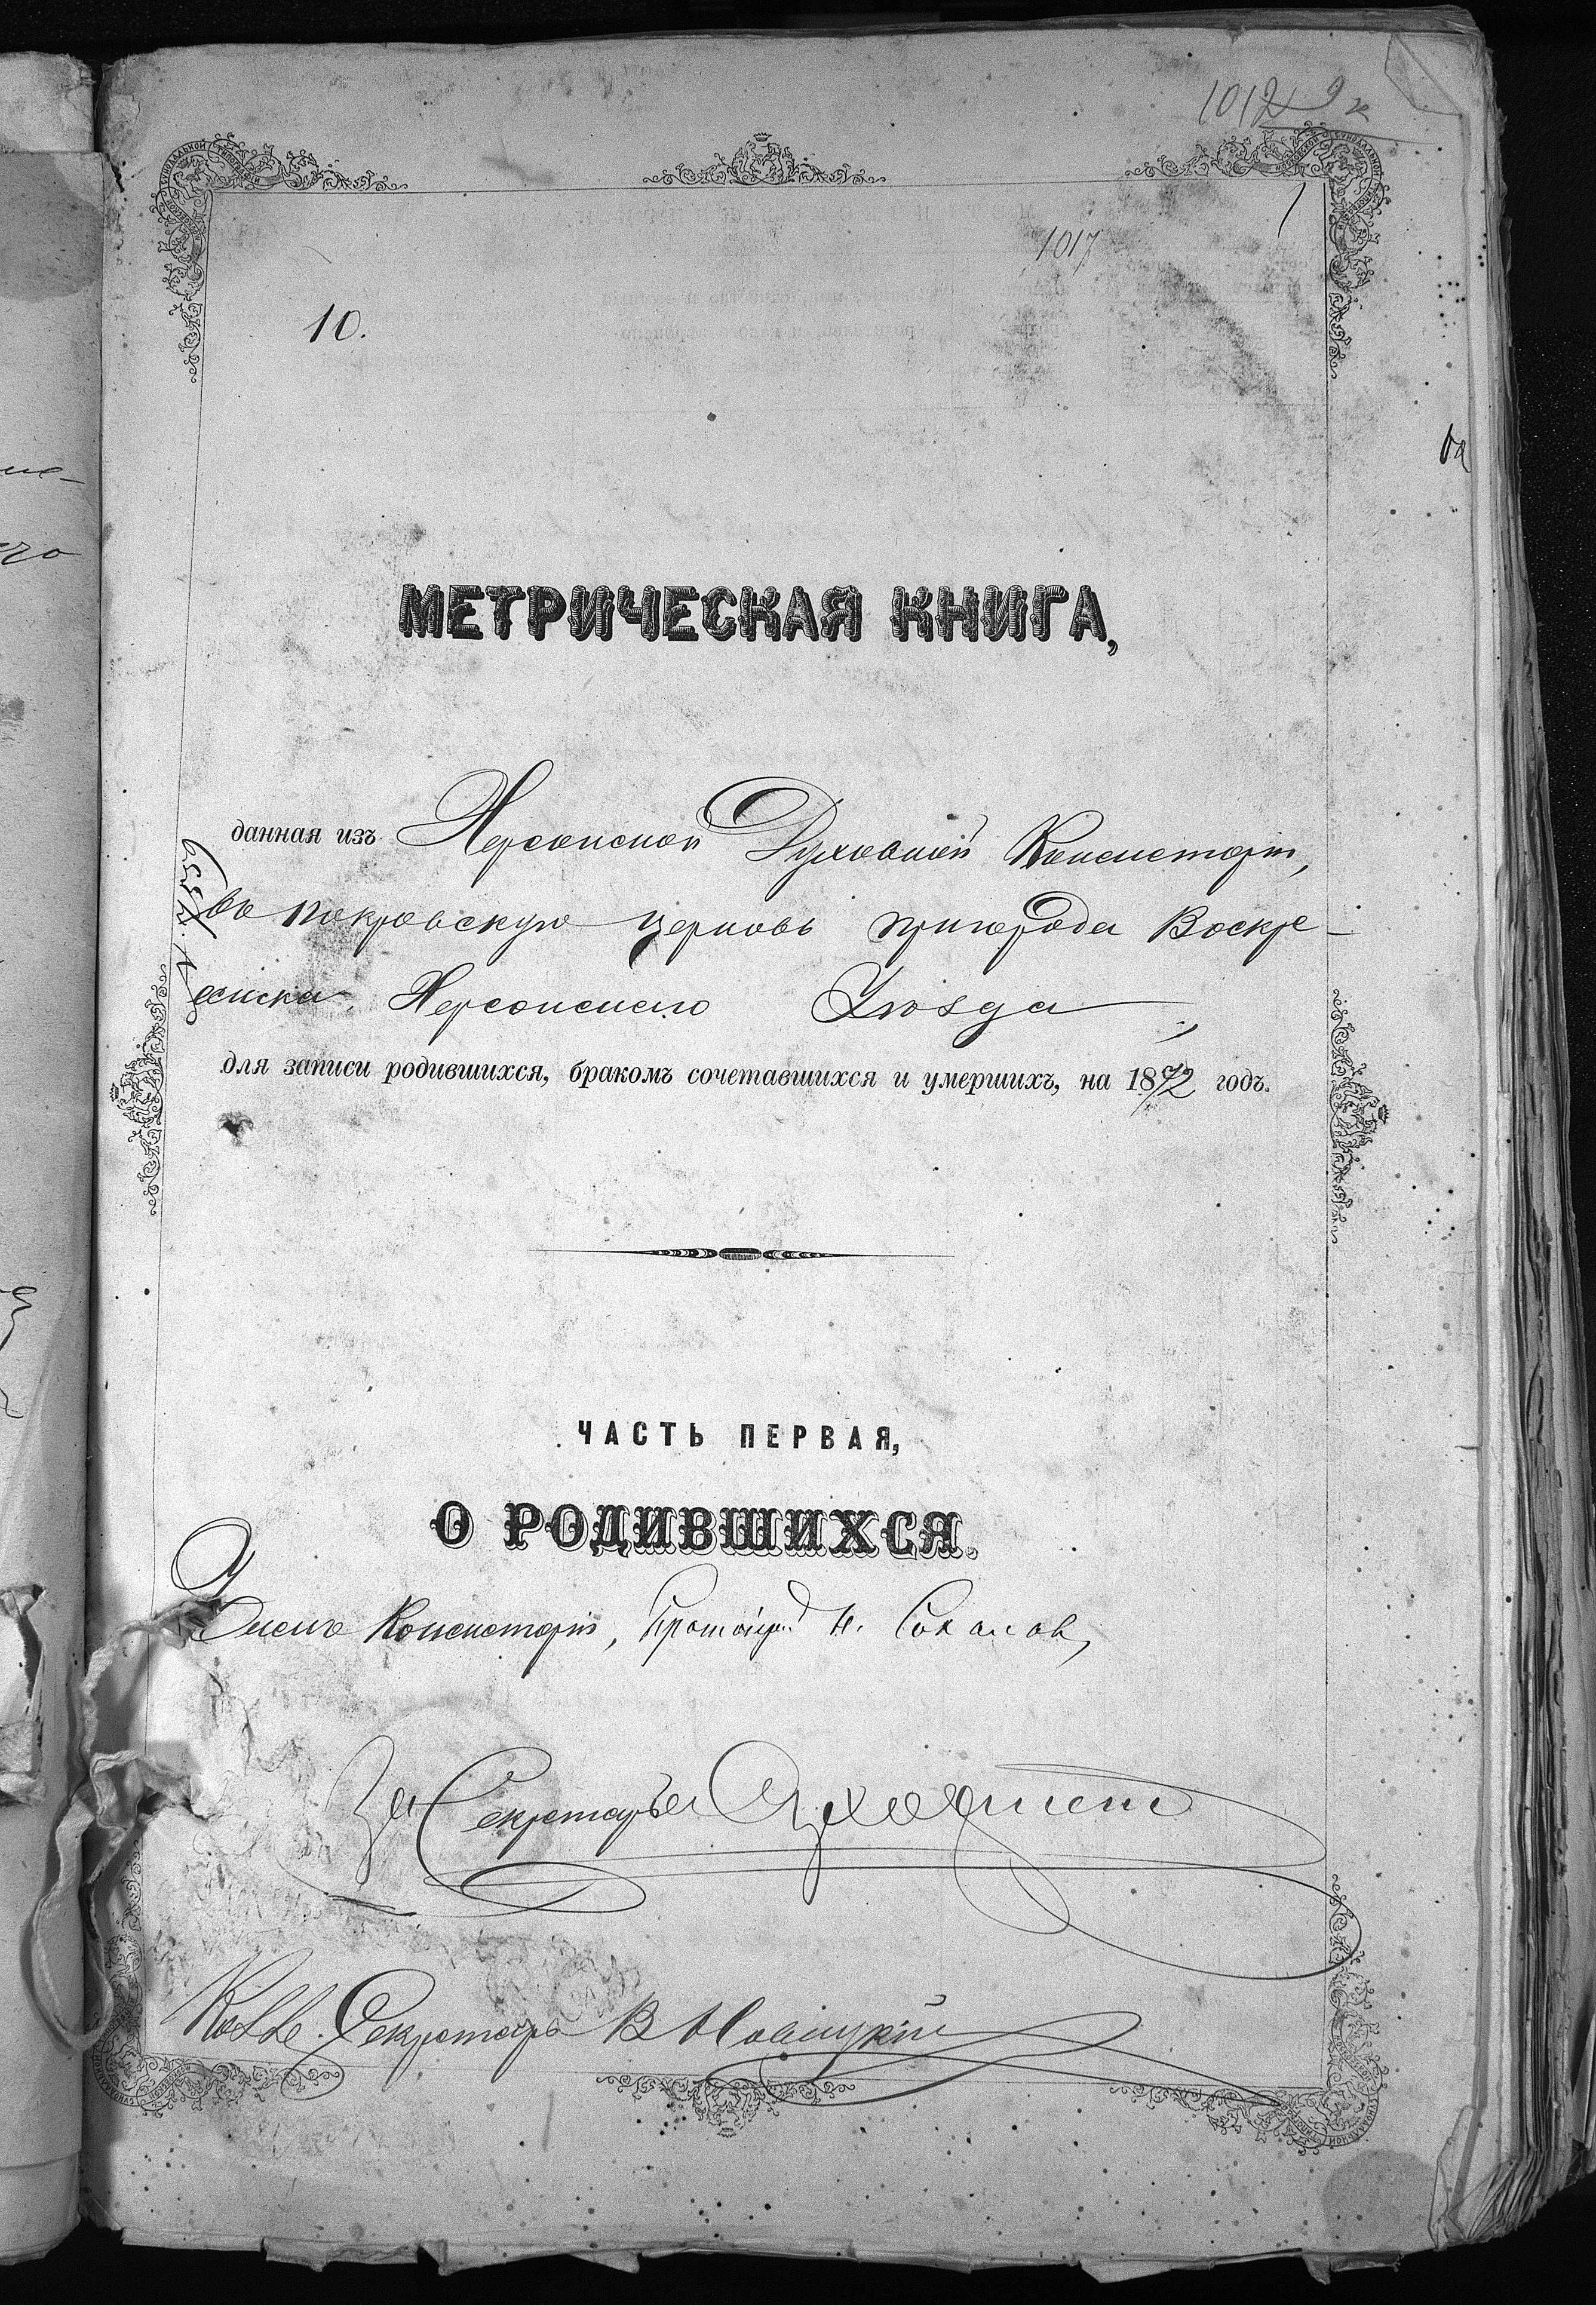 1012
1017
10.
МЕТРИЧЕСКАЯ КНИГА,
данная изъ Херсонской Духовной Консисторіи,
въ Покровскую церковь пригорода Воскре-
сенска, Херсонскаго Уѣзда,
для записи родившихся, бракомъ сочетавшихся и умершихъ, на 1872 годъ.
ЧАСТЬ ПЕРВАЯ,
О РОДИВШИХСЯ.
Членъ Консисторіи, Протоіерей Н. Соколовъ,
За Секретаря
Колле. Секретарь В Новицкій